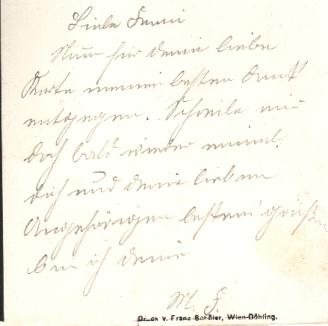 Liebe Fanni
Nimm für deine liebe
Karte meinen besten Dank
entgegen. Schreibe mir
doch bald wieder einmal.
dich und deine lieben
Angehörigen bestens grüßt
bin ich deine
M. F.
Druck v. Franz Wien-Döbling.